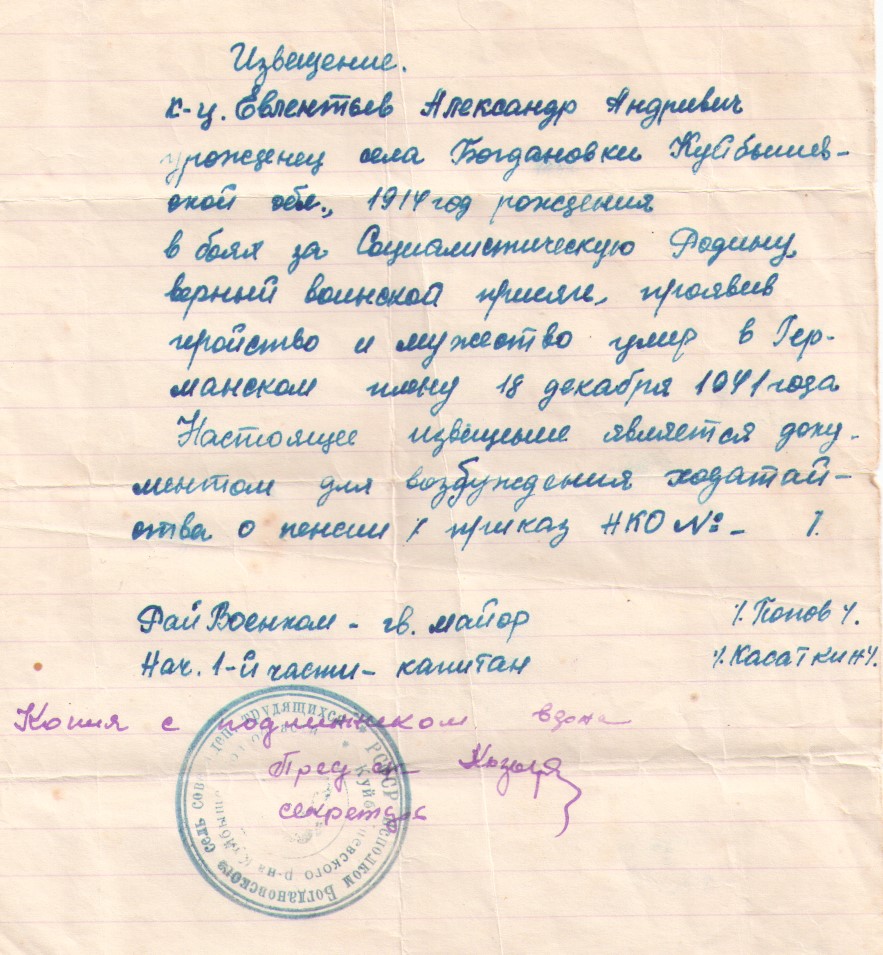 Извещение.
к-ц. Евлентьев Александр Андривич
уроженец села Богдановки Куйбышев-
ской обл., 1914 год рождения
в боях за Социалистическую Родину,
верный воинской присяги, проявив
геройство и мужество умер в Гер-
манском плену 18 декабря 1941 года
Настоящее извещение является доку-
ментом для возбуждения ходатай-
ства о пенсии /. приказ НКО №- /.
РайВоенком - гв. майор /. Попов /.
Нач. 1-й части - капитан /. Касаткин /.
Копия с подлинником
Пред
секретарь
РСФСР Исполком Богдановского сель сов деп. трудящихся
Куйбышевского р-на